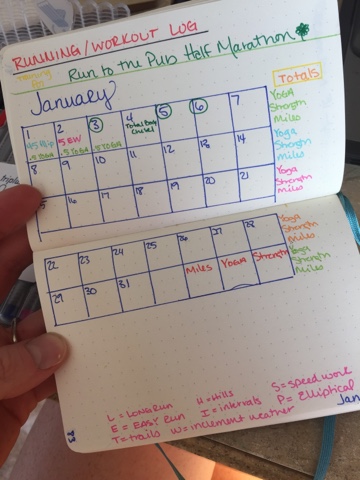 RUNNING/WORKOUT LOG
Training For
Run to the Pub Half Marathon
Totals
January
1 2 3 4 5 6 7
5 BW Total Body Chisel
.5 YOGA .5 YOGA .5 YOGA
Yoga
Strength
Miles
8 9 10 11 12 13 14
Yoga
Strength
Miles
16 17 18 19 20 21
Yoga
Strength
Miles
22 23 24 25 26 27 28
Yoga
Strength
Miles
29 30 31 Miles YOGA Strength
Yoga
Strength
Miles
L = LONG RUN H = Hills S = Speed work
E = EASY RUN I = intervals P = Elliptical
T = trails W = inclement weather
Jan